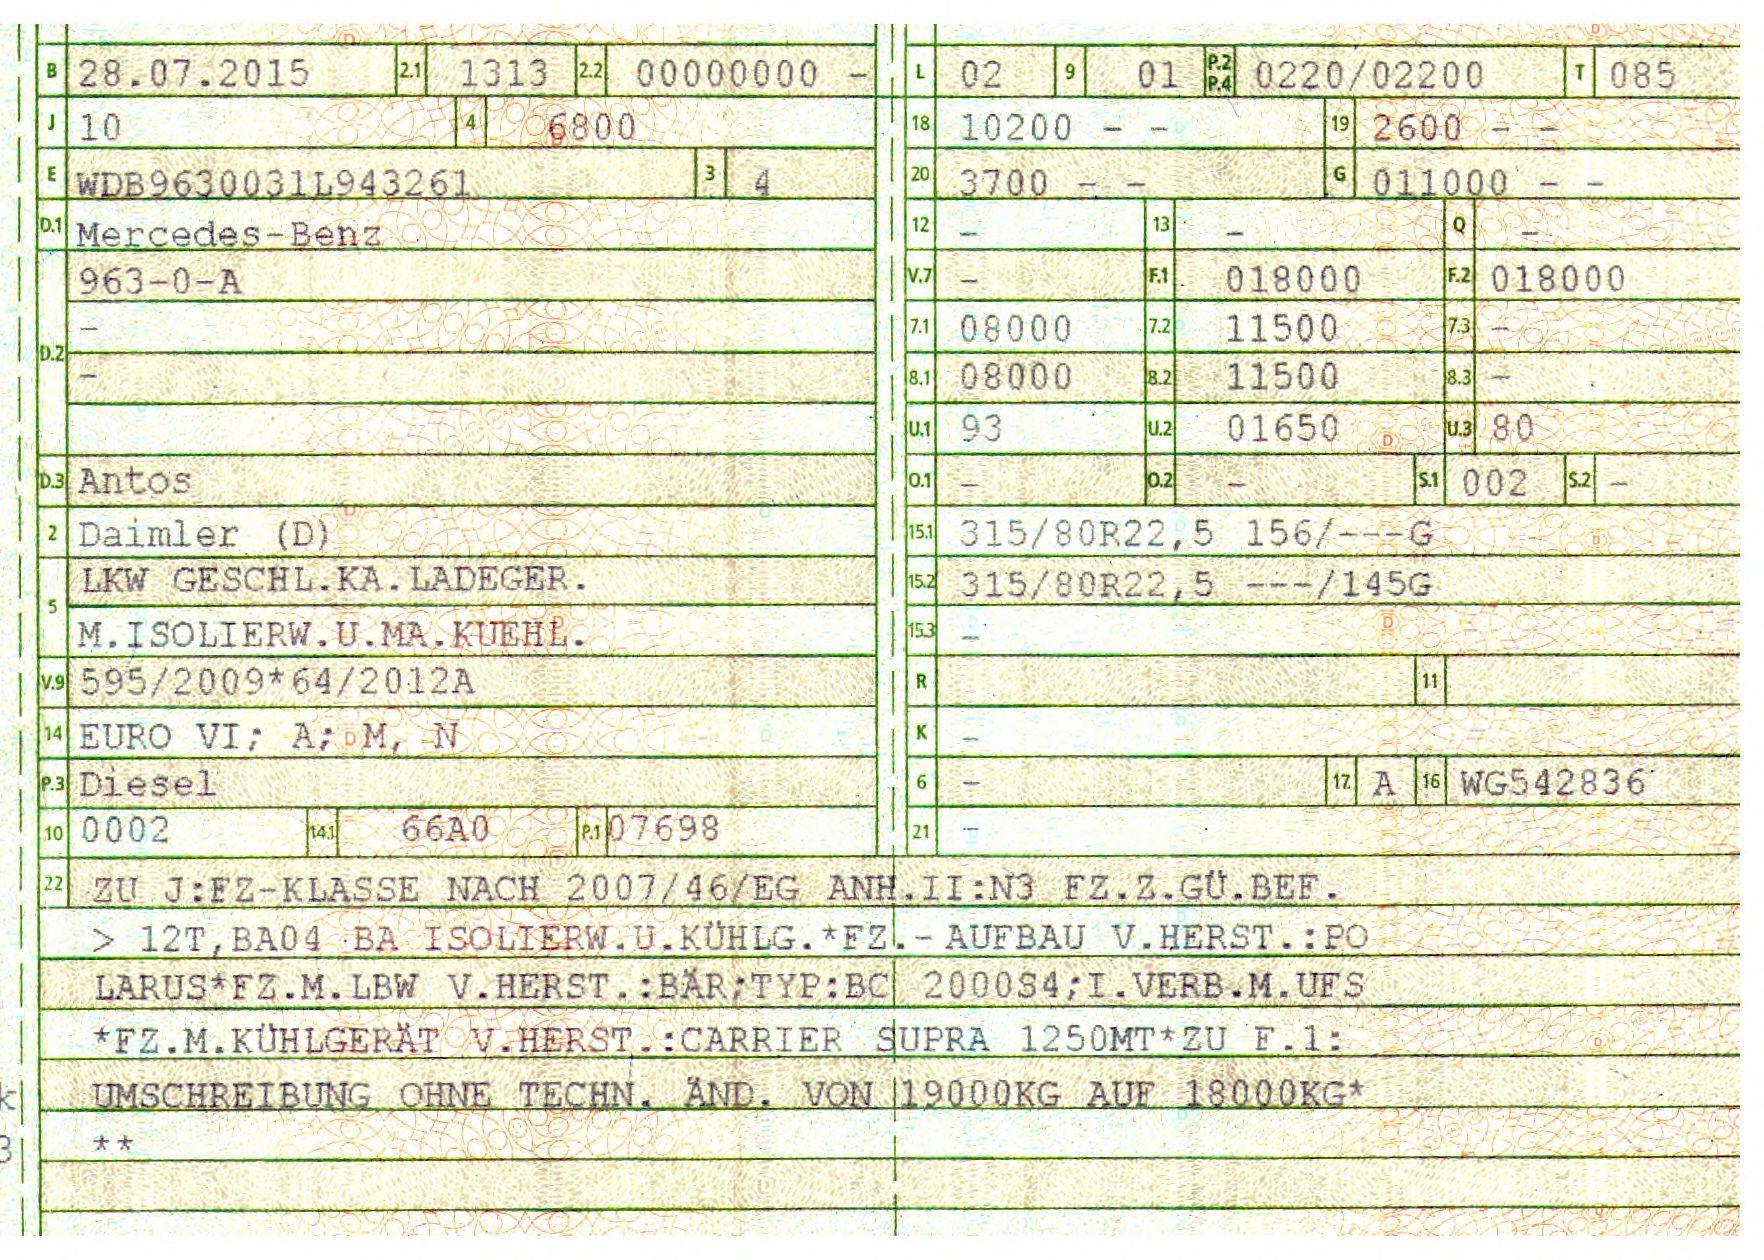 B 28.07.2015 2.1 1313 2.2 00000000 -
J 10 4 6800
E WDB9630031L943261 3 4
D.1 Mercedes-Benz
963-0-A
-
D.2
-
D.3 Antos
2 Daimler (D)
LKW GESCHL.KA.LADEGER.
5
M.ISOLIERW.U.MA.KUEHL.
V.9 595/2009*64/2012A
14 EURO VI; A; M, N
P.3 Diesel
10 0002 14.1 66A0 P.1 07698
L 02 9 01 P.2 P.4 0220/02200 T 085
18 10200 - - 19 2600 - -
20 3700 - - G 011000 - -
12 - 13 - Q -
V.7 - F.1 018000 F.2 018000
7.1 08000 7.2 11500 7.3 -
8.1 08000 8.2 11500 8.3 -
U.1 93 U.2 01650 U.3 80
O.1 - O.2 - S.1 002 S.2 -
15.1 315/80R22,5 156/---G
15.2 315/80R22,5 ---/145G
15.3 -
R 11
K -
6 - 17 A 16 WG542836
21 -
22 ZU J:FZ-KLASSE NACH 2007/46/EG ANH.II:N3 FZ.Z.GÜ.BEF.
> 12T,BA04 BA ISOLIERW.U.KÜHLG.*FZ.-AUFBAU V.HERST.:PO
LARUS*FZ.M.LBW V.HERST.:BÄR;TYP:BC 2000S4;I.VERB.M.UFS
*FZ.M.KÜHLGERÄT V.HERST.:CARRIER SUPRA 1250MT*ZU F.1:
UMSCHREIBUNG OHNE TECHN. ÄND. VON 19000KG AUF 18000KG*
**